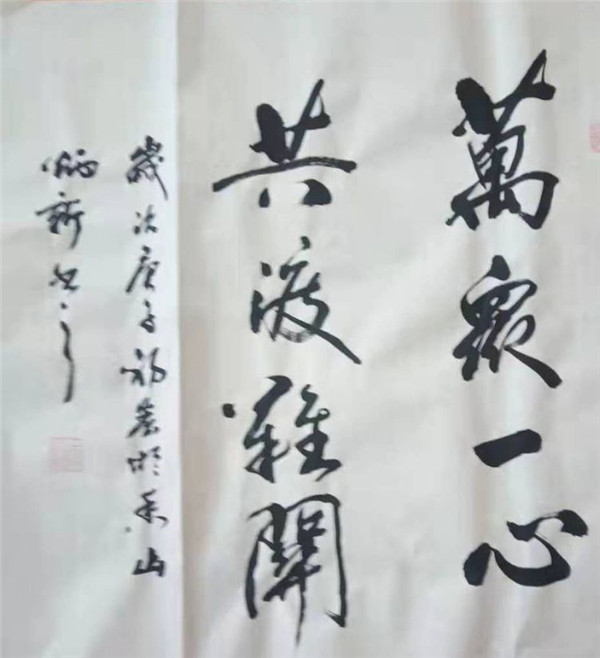 萬衆一心
共渡難關
歲次庚子初春於香山
炳新書之